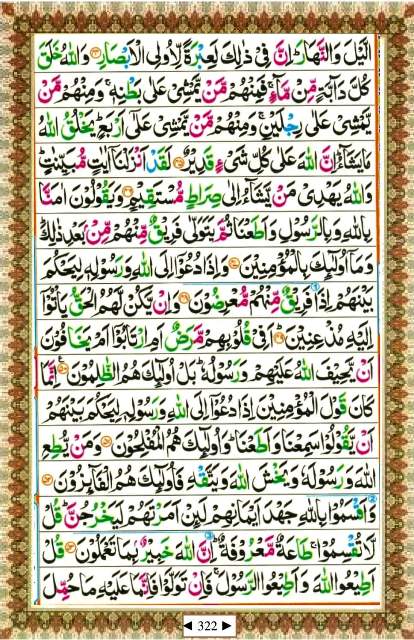 الَّيْلَ وَالنَّهَارَ ؕ اِنَّ فِيْ ذٰلِكَ لَعِبْرَةً لِّاُولِي الْاَبْصَارِ ﴿۴۴﴾ وَاللّٰهُ خَلَقَ
كُلَّ دَآبَّةٍ مِّنْ مَّآءٍ ۚ فَمِنْهُمْ مَّنْ يَّمْشِيْ عَلٰى بَطْنِهٖ ۚ وَمِنْهُمْ مَّنْ
يَّمْشِيْ عَلٰى رِجْلَيْنِ ۚ وَمِنْهُمْ مَّنْ يَّمْشِيْ عَلٰۤى اَرْبَعٍ ؕ يَخْلُقُ اللّٰهُ
مَا يَشَآءُ ؕ اِنَّ اللّٰهَ عَلٰى كُلِّ شَيْءٍ قَدِيْرٌ ﴿۴۵﴾ لَقَدْ اَنْزَلْنَاۤ اٰيٰتٍ مُّبَيِّنٰتٍ ؕ
وَاللّٰهُ يَهْدِيْ مَنْ يَّشَآءُ اِلٰى صِرَاطٍ مُّسْتَقِيْمٍ ﴿۴۶﴾ وَيَقُوْلُوْنَ اٰمَنَّا
بِاللّٰهِ وَبِالرَّسُوْلِ وَاَطَعْنَا ثُمَّ يَتَوَلّٰى فَرِيْقٌ مِّنْهُمْ مِّنْۢ بَعْدِ ذٰلِكَ ؕ
وَمَاۤ اُولٰٓئِكَ بِالْمُؤْمِنِيْنَ ﴿۴۷﴾ وَاِذَا دُعُوْۤا اِلَى اللّٰهِ وَرَسُوْلِهٖ لِيَحْكُمَ
بَيْنَهُمْ اِذَا فَرِيْقٌ مِّنْهُمْ مُّعْرِضُوْنَ ﴿۴۸﴾ وَاِنْ يَّكُنْ لَّهُمُ الْحَقُّ يَاْتُوْۤا
اِلَيْهِ مُذْعِنِيْنَ ﴿۴۹﴾ اَفِيْ قُلُوْبِهِمْ مَّرَضٌ اَمِ ارْتَابُوْۤا اَمْ يَخَافُوْنَ
اَنْ يَّحِيْفَ اللّٰهُ عَلَيْهِمْ وَرَسُوْلُهٗ ؕ بَلْ اُولٰٓئِكَ هُمُ الظّٰلِمُوْنَ ﴿۵۰﴾ اِنَّمَا
كَانَ قَوْلَ الْمُؤْمِنِيْنَ اِذَا دُعُوْۤا اِلَى اللّٰهِ وَرَسُوْلِهٖ لِيَحْكُمَ بَيْنَهُمْ
اَنْ يَّقُوْلُوْا سَمِعْنَا وَاَطَعْنَا ؕ وَاُولٰٓئِكَ هُمُ الْمُفْلِحُوْنَ ﴿۵۱﴾ وَمَنْ يُّطِعِ
اللّٰهَ وَرَسُوْلَهٗ وَيَخْشَ اللّٰهَ وَيَتَّقْهِ فَاُولٰٓئِكَ هُمُ الْفَآئِزُوْنَ ﴿۵۲﴾
وَاَقْسَمُوْا بِاللّٰهِ جَهْدَ اَيْمَانِهِمْ لَئِنْ اَمَرْتَهُمْ لَيَخْرُجُنَّ ؕ قُلْ
لَّا تُقْسِمُوْا ۚ طَاعَةٌ مَّعْرُوْفَةٌ ؕ اِنَّ اللّٰهَ خَبِيْرٌۢ بِمَا تَعْمَلُوْنَ ﴿۵۳﴾ قُلْ
اَطِيْعُوا اللّٰهَ وَاَطِيْعُوا الرَّسُوْلَ ۚ فَاِنْ تَوَلَّوْا فَاِنَّمَا عَلَيْهِ مَا حُمِّلَ
◄ 322 ►